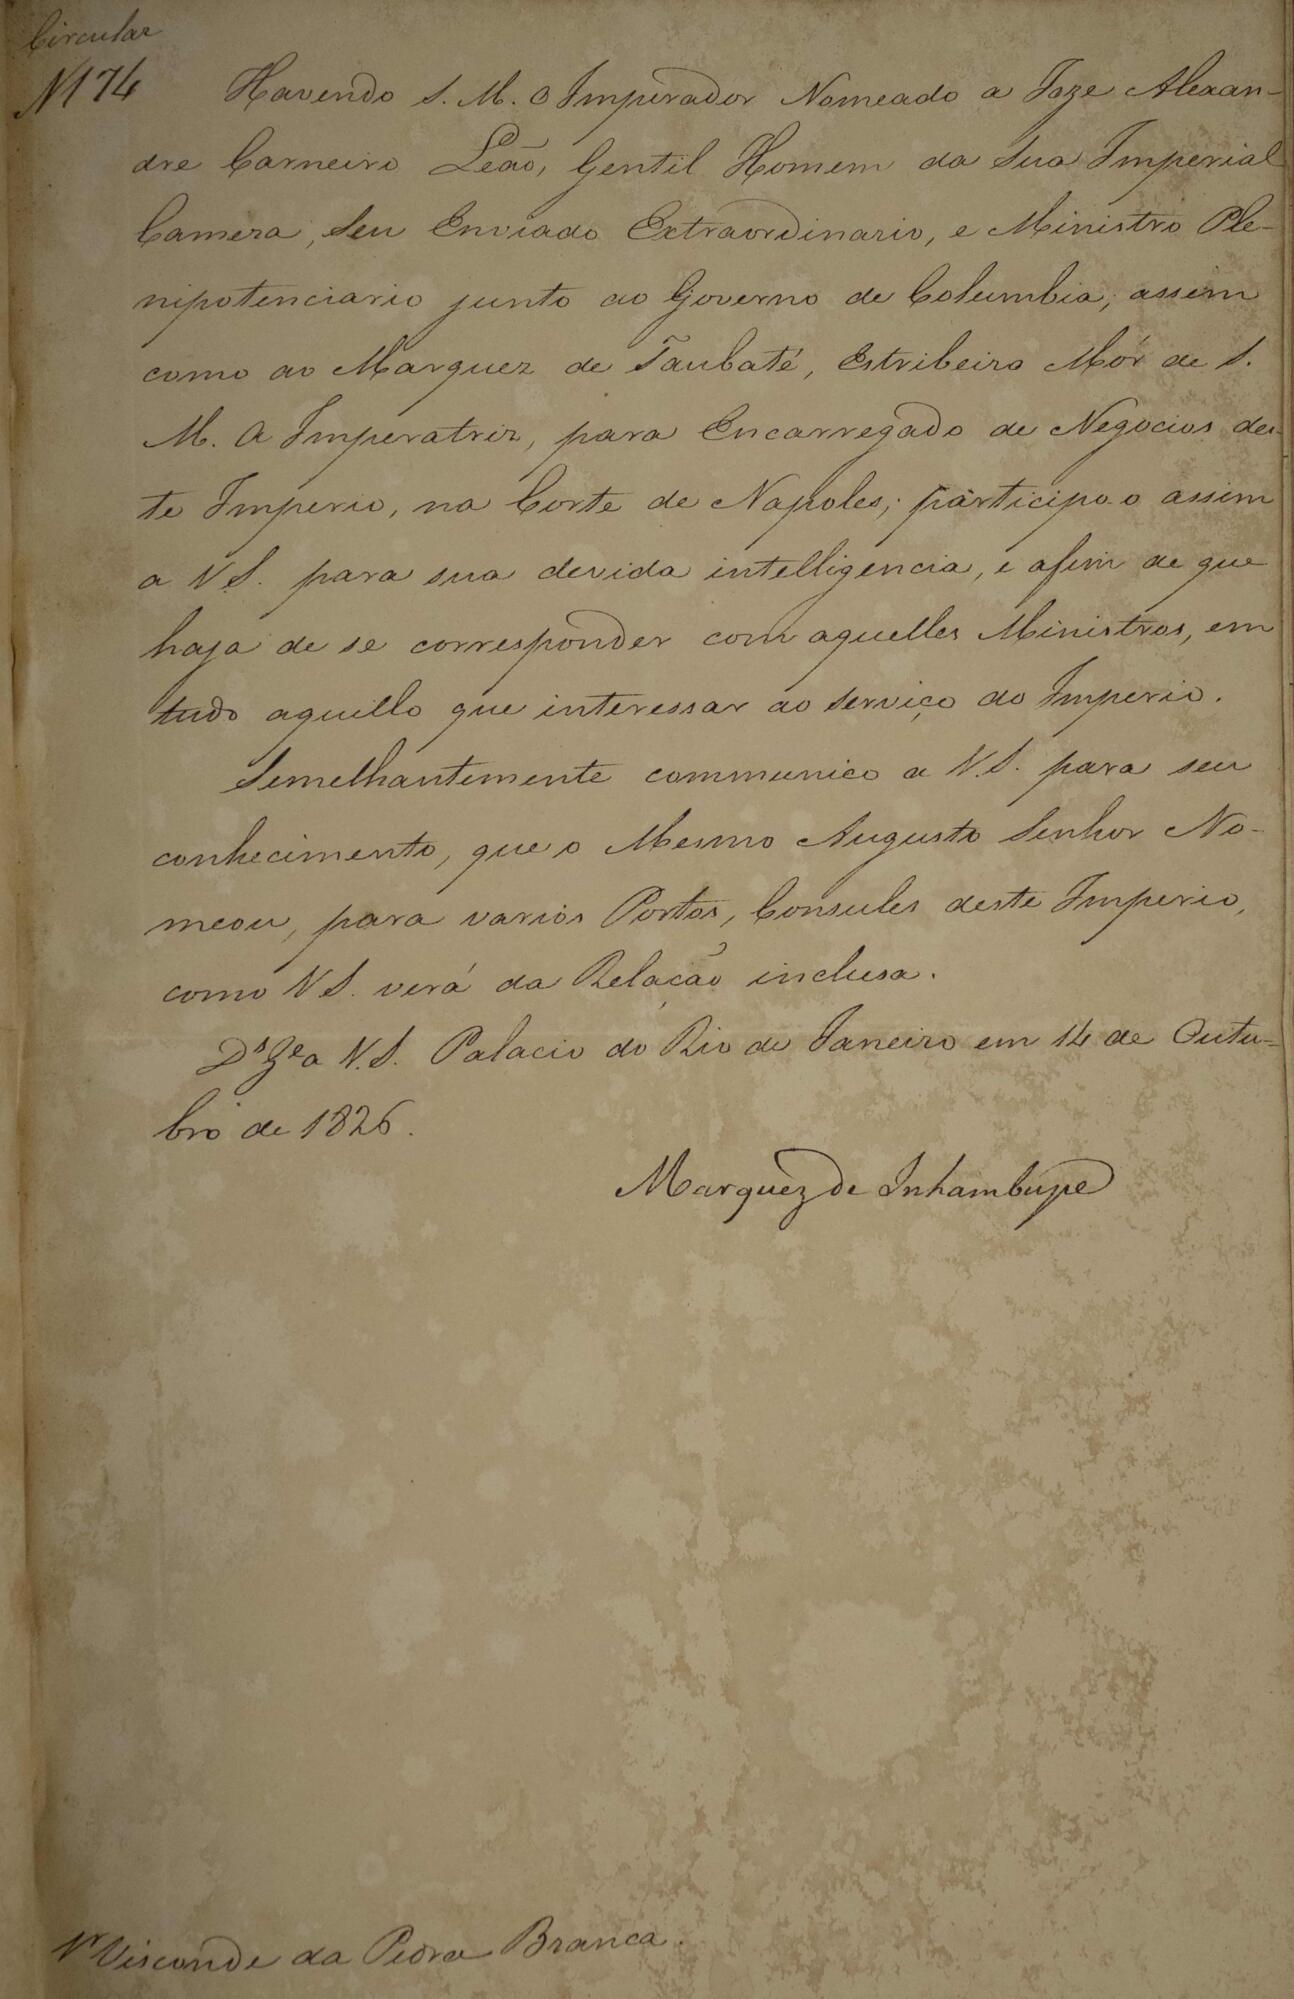 Circular
N 174
Havendo S. M. O Imperador Nomeado a Joze Alexan-
dre Carneiro Leão, Gentil Homem da Sua Imperial
Camera, Seu Enviado Extraordinario, e Ministro Ple-
nipotenciario junto ao Governo de Columbia, assim
como ao Marquez de Taubaté, Estribeiro Mór de S.
M. A Imperatriz, para Encarregado de Negocios des-
te Imperio, na Corte de Napoles; participo-o assim
a V S. para sua devida intelligencia, e afim de que
haja de se corresponder com aquelles Ministros, em
tudo aquillo que interessar ao serviço do Imperio.
Semelhantemente communico a V. S. para seu
conhecimento, que o Mesmo Augusto Senhor No-
meou, para varios Portos, Consules deste Imperio,
como V S. verá da Relação inclusa.
Ds Ge a V. S. Palacio do Rio de Janeiro em 14 de Outu-
bro de 1826.
Marquez de Inhambupe
Sr Visconde da Pedra Branca.